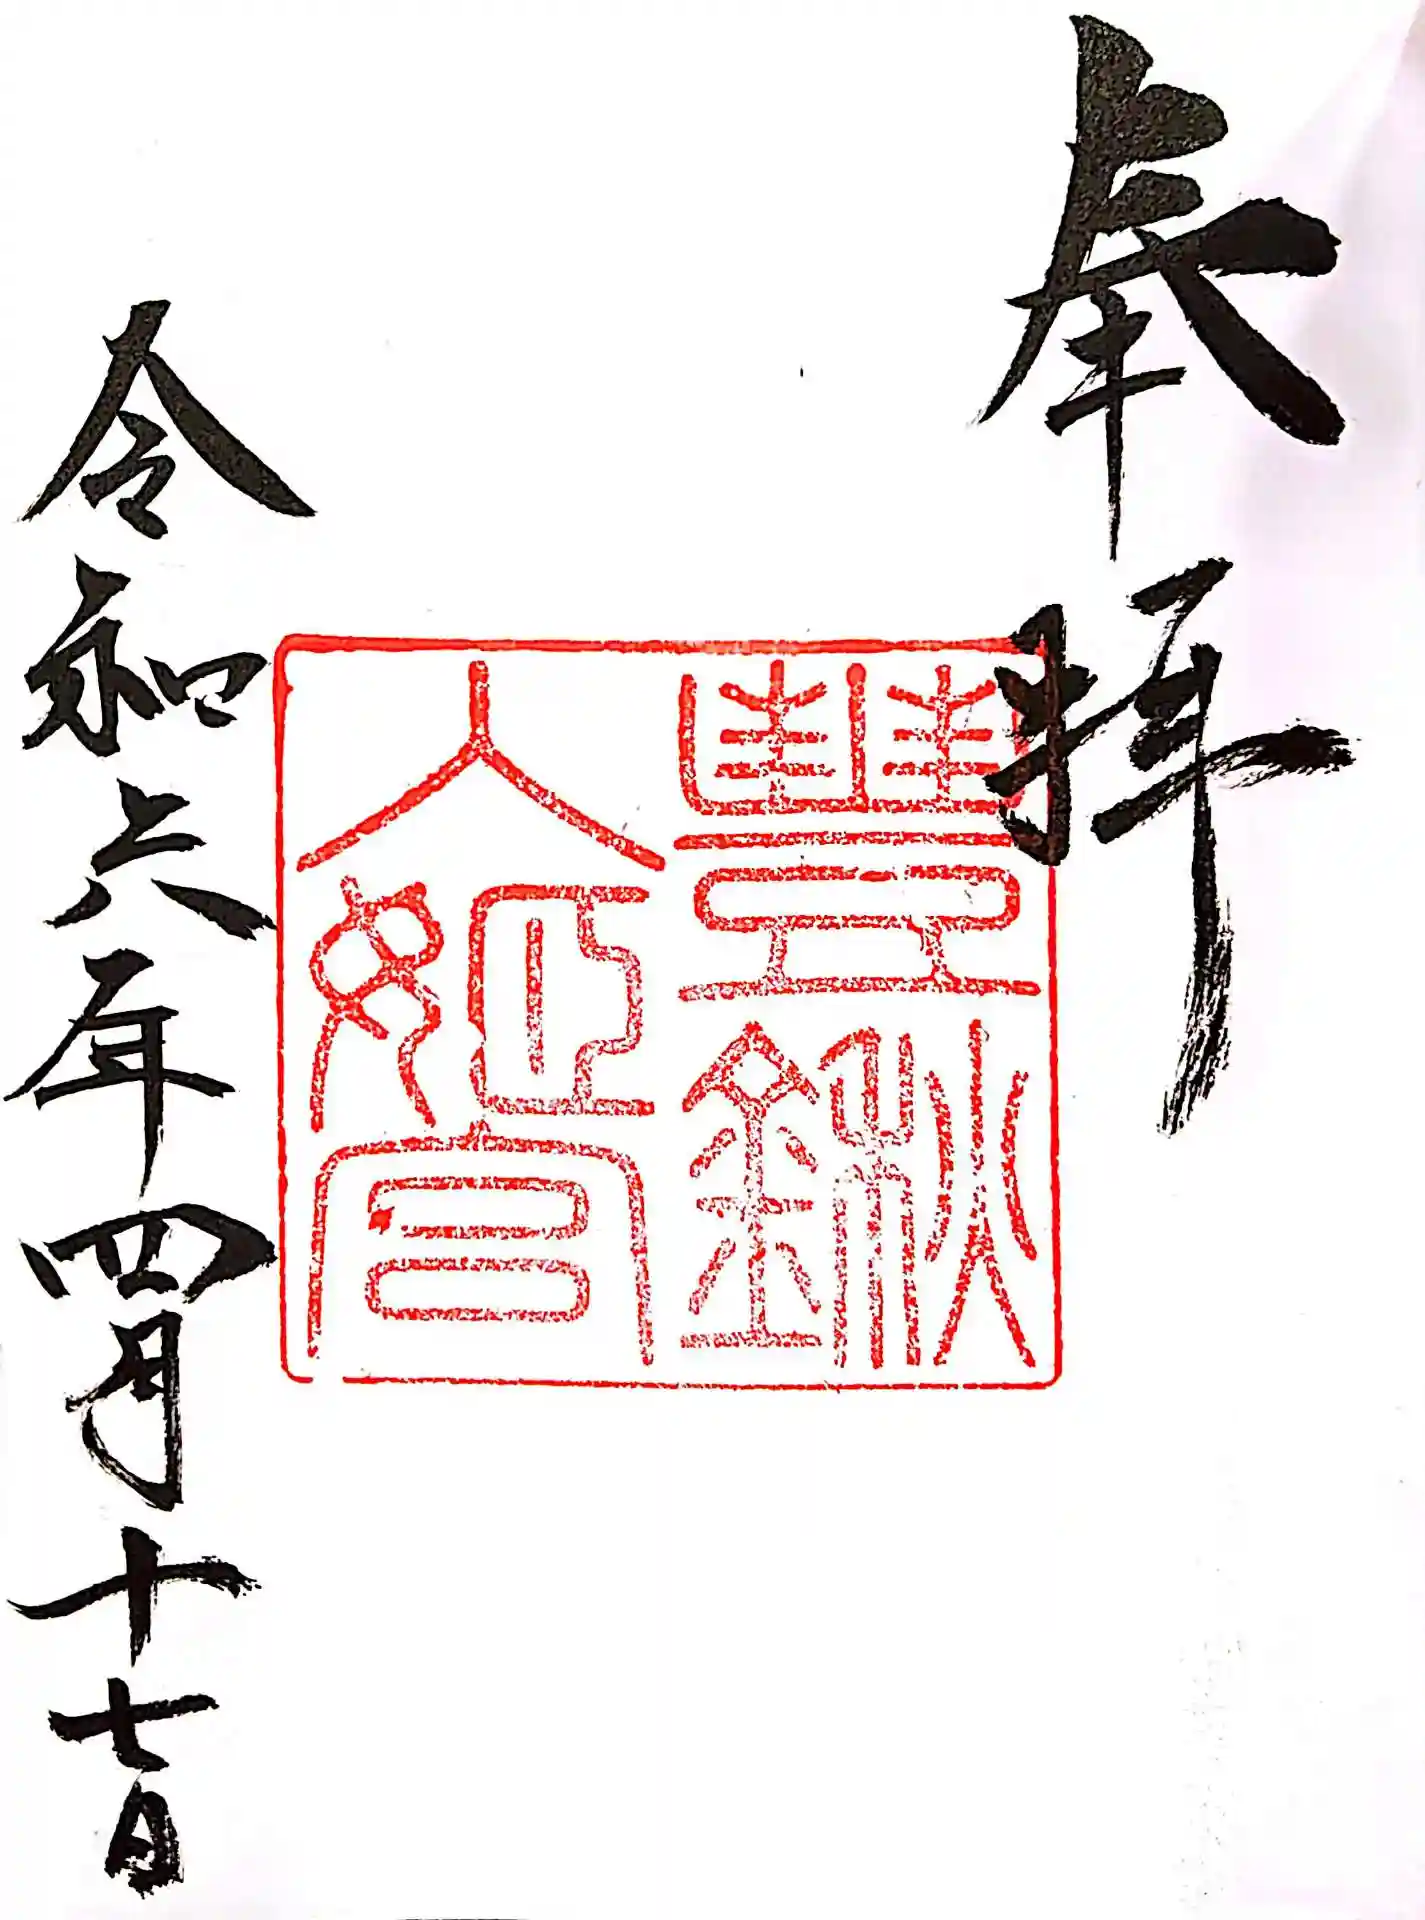 奉拝
豐鍬
入姫宮
令和六年四月十七日